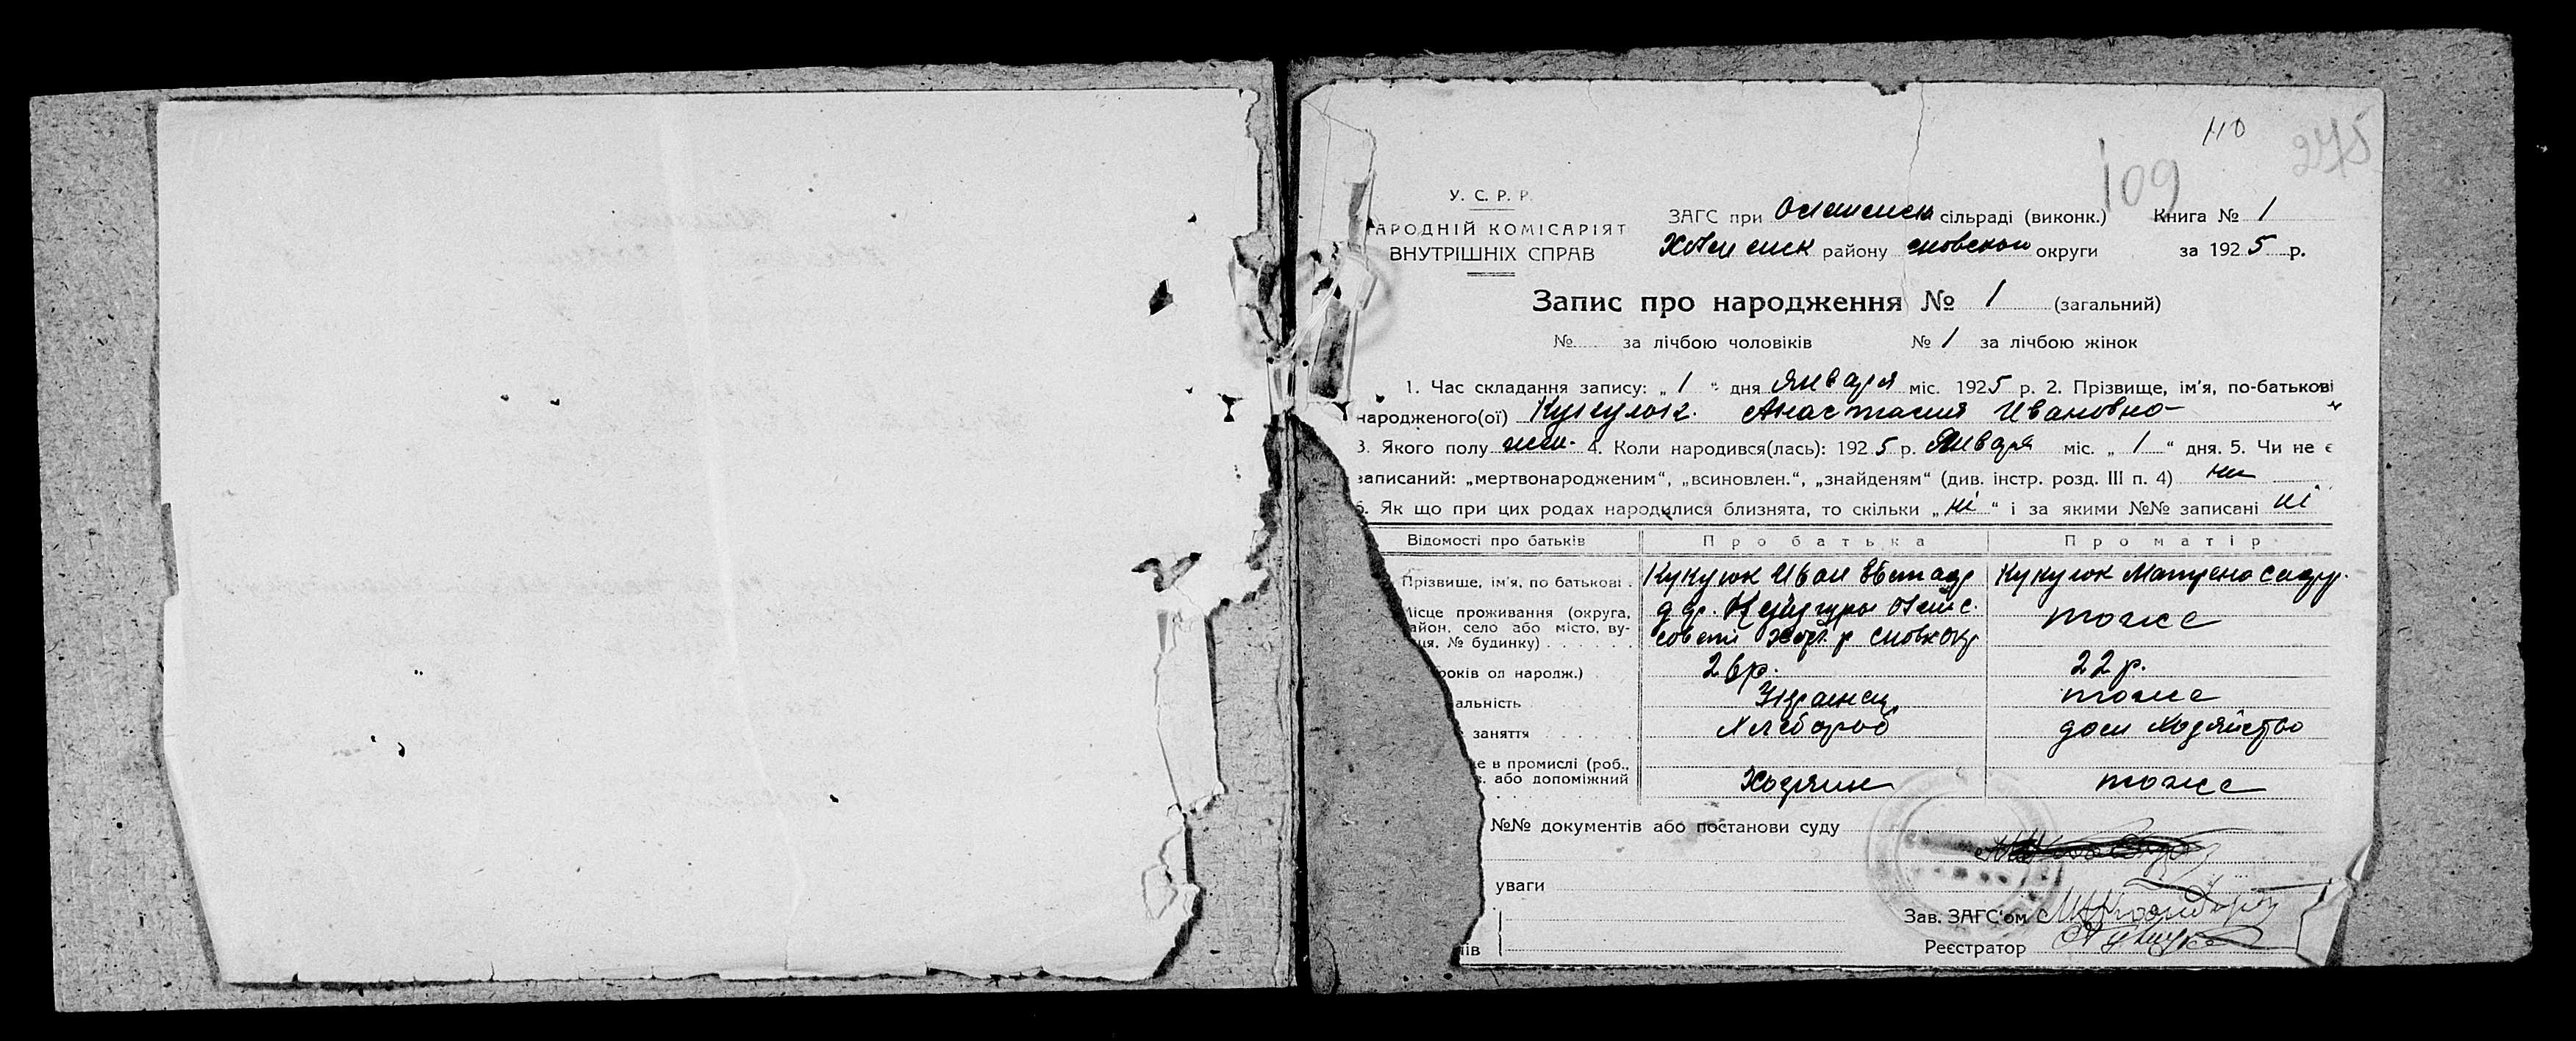 110
275
109
У. С. Р. Р.
АРОДНІЙ КОМІСАРІЯТ
ВНУТРІШНІХ СПРАВ
ЗАГС при сільраді (виконк.) Книга № 1
району сновской округи за 1925 р.
Запис про народження № 1 (загальний)
№ за лічбою чоловіків № 1 за лічбою жінок
1. Час складання запису: „ 1 “ дня Января міс. 1925 р. 2. Прізвище, ім'я, по-батькові
народженого(ої) Анастасия Ивановна
3. Якого полу жен. 4. Коли народився(лась): 1925 р. Января міс. „ 1 “ дня. 5. Чи не є
записаний: „мертвонародженим“, „всиновлен.“, „знайденям“ (див. інстр. розд. III п. 4) ни
6. Як що при цих родах народилися близнята, то скільки „ ні “ і за якими №№ записані ні
Відомості про батьків Про батька Про матір
Прізвище, ім'я, по батькові Кукуюк Иван Кукуюк Матрена
Місце проживання (округа,
айон, село або місто, ву- тоже
ця, № будинку)
років од народж.) 26 р. 22 р.
альність Украинец тоже
заняття Хлебороб дом Хозяйство
е в промислі (роб.,
або допоміжний Хозяин тоже
№№ документів або постанови суду
уваги
Зав. ЗАГС'ом
Реєстратор
ів